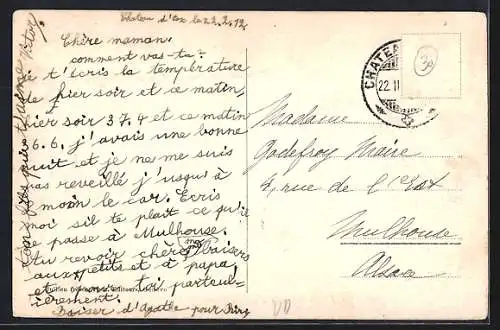 Chateau d'Oex le 22.2.12
Chère maman.
comment vas-tu?
je t'écris la température
de hier soir et ce matin,
hier soir 37.4 et ce matin
36.6. j'avais une bonne
nuit et je ne me suis
pas reveillé j'usqu'à
moin le car. Ecris
moi sil te plait ce qu'il
se passe à Mulhouse.
Au revoir chère baisers
aux petits et à papa,
et à toi particul-
ièrement.
Baiser d'Agathe pour
CHATEAU
22.II
30
Madame
Godefroy Maire
4, rue de l'Est
Mulhouse
Alsace